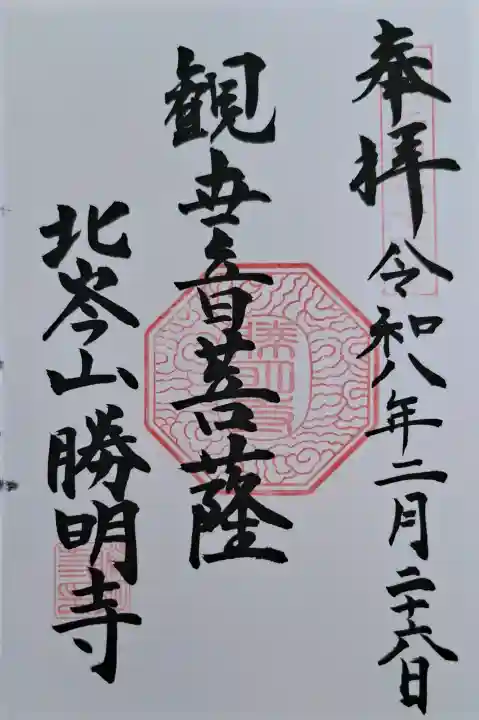 奉拝 令和八年二月二十六日
観世音菩薩
北岑山勝明寺